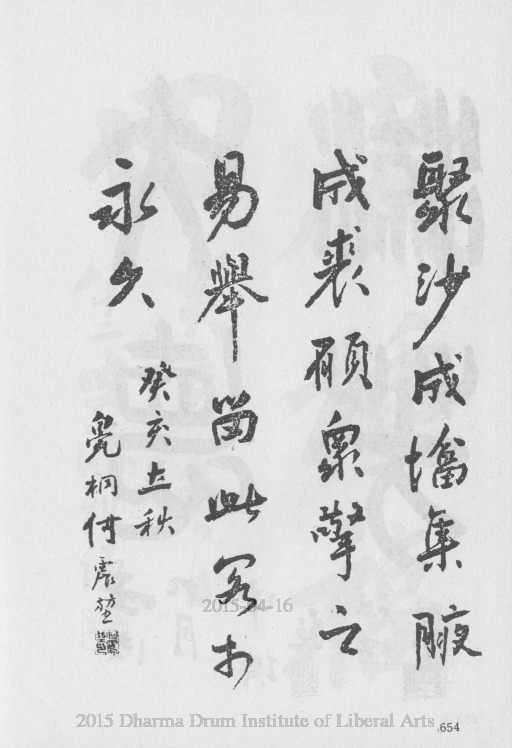 聚沙成墖集腋
成裘願衆擎之
易舉留此冢木
永久
癸亥上秋
2015-04-16
2015 Dharma Drum Institute of Liberal Arts
654